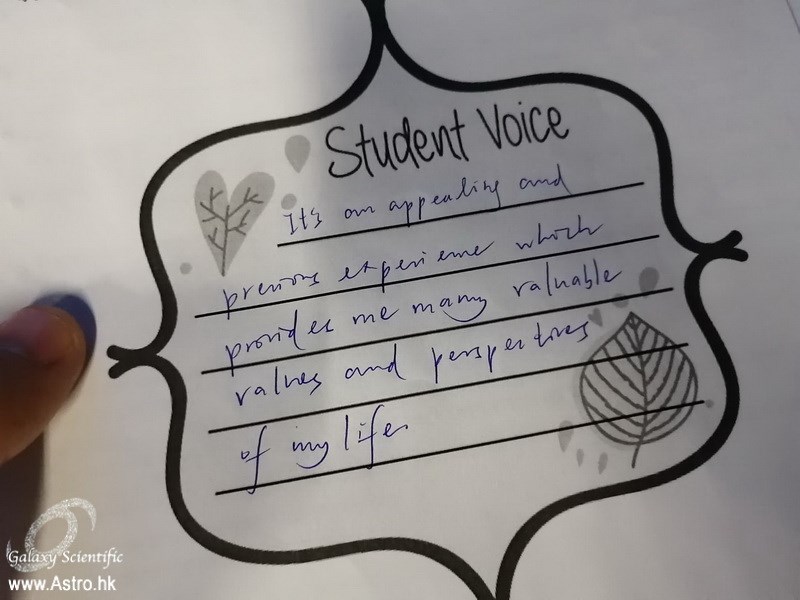 Student Voice
It's an appealing and
previous experience which
provides me many valuable
values and perspectives
of my life.
Galaxy Scientific
www.Astro.hk